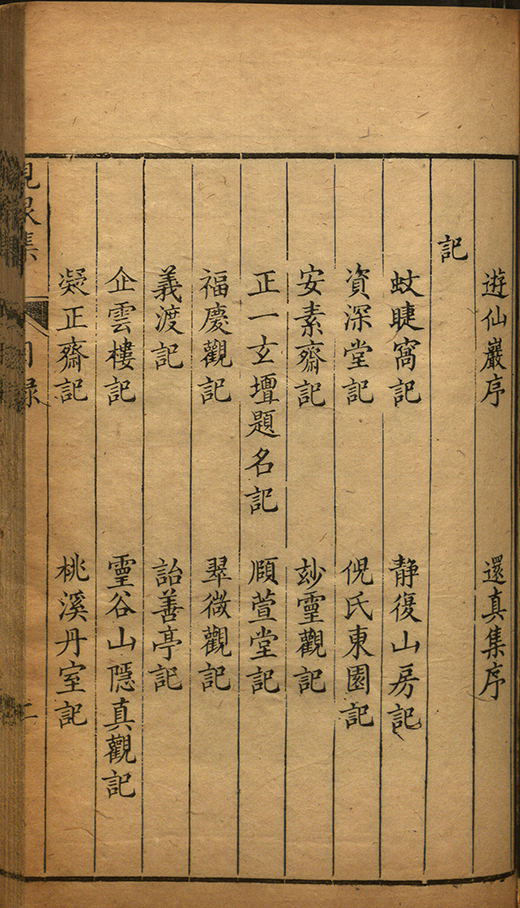 遊仙巖序　還真集序
記
蚊睫窩記　静復山房記
資深堂記　倪氏東園記
安素齋記　玅靈觀記
正一玄壇題名記　頤萱堂記
福慶觀記　翠微觀記
義渡記　詒善亭記
企雲樓記　靈谷山隱真觀記
凝正齋記　桃溪丹室記
峴泉集　目録　二